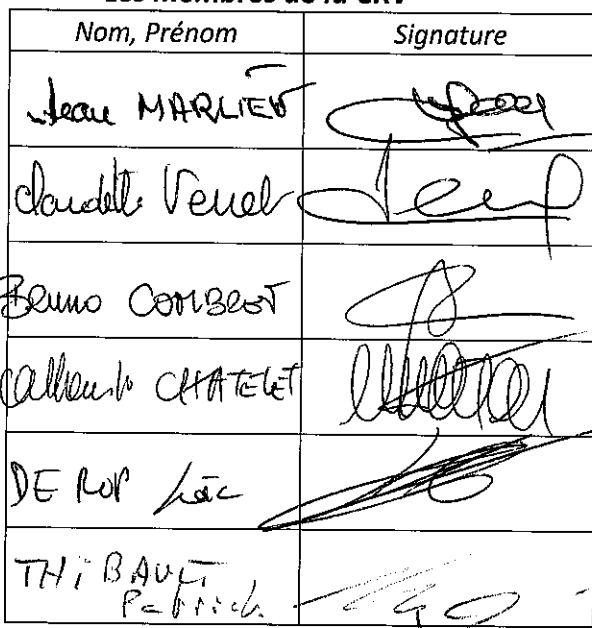 Les membres de la CRV
Nom, Prénom Signature
Jean MARLIER
Claudette Venel
Bruno COMBROT
CHATELET
DE ROP Loïc
THIBAULT
Patrick